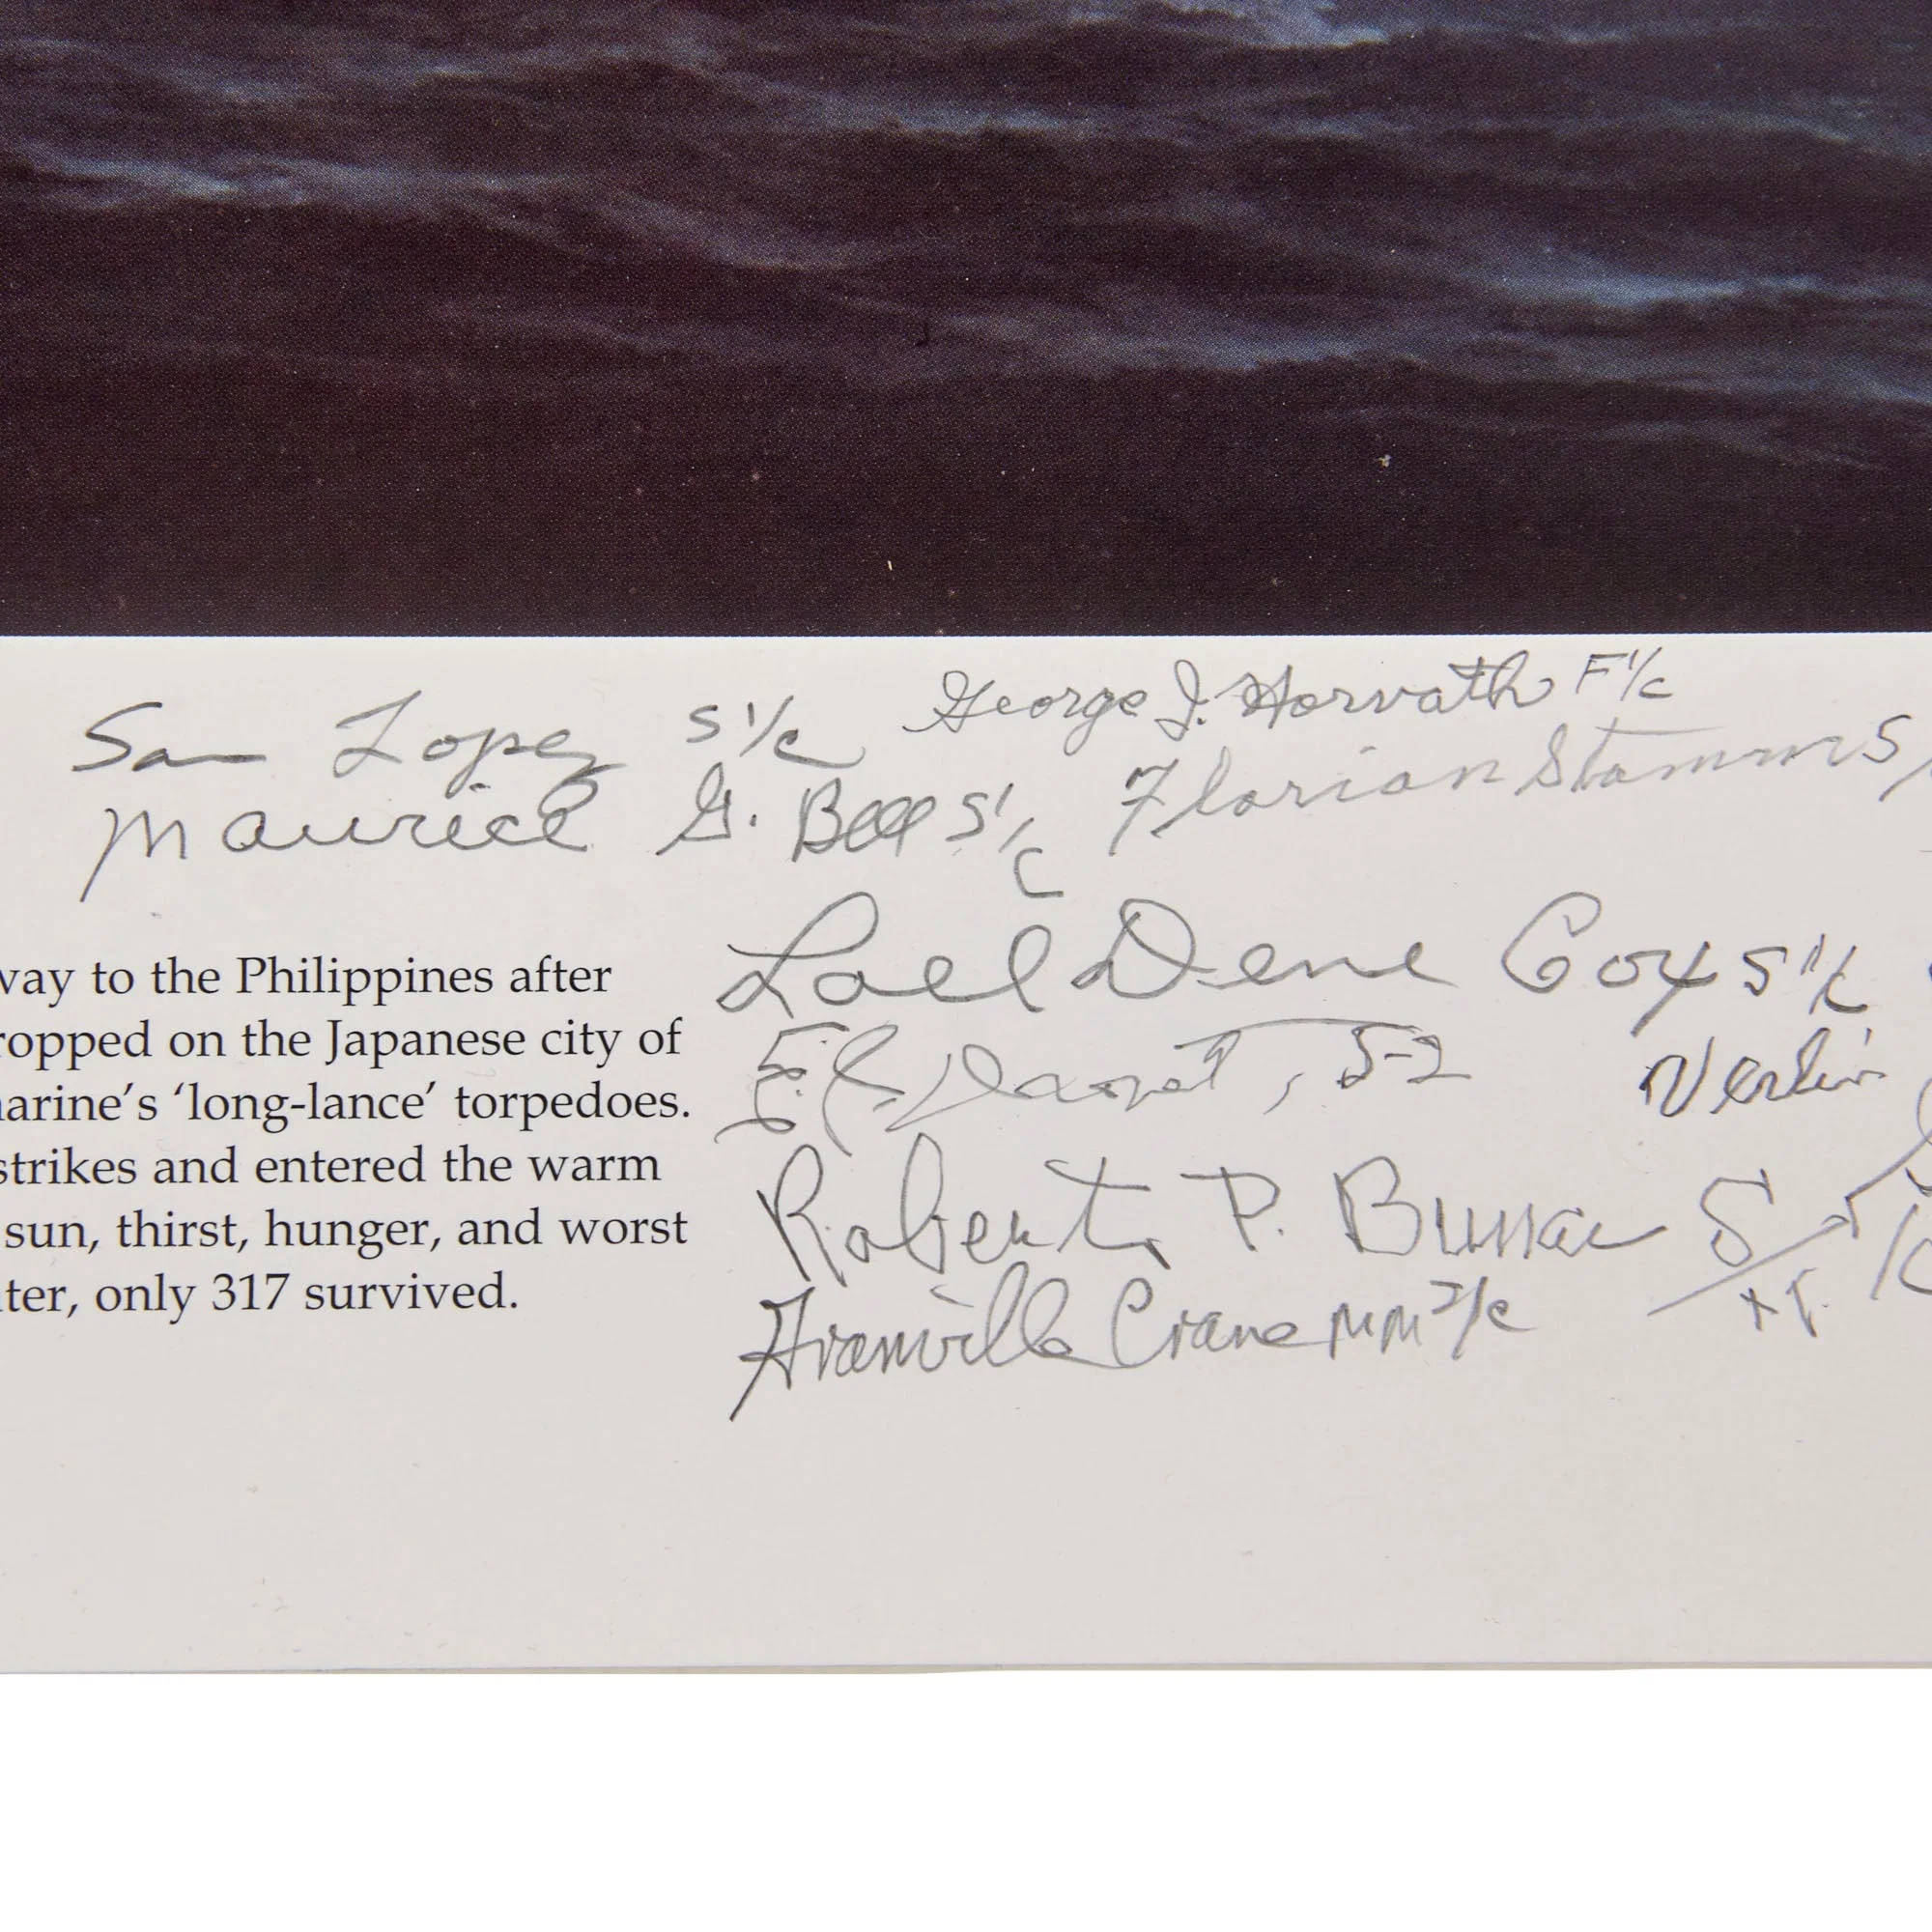 San Lopez S 1/c George J. Horvath F 1/c
Maurice G. Bell S 1/c Florian Stamm S
way to the Philippines after
ropped on the Japanese city of
arine's 'long-lance' torpedoes.
strikes and entered the warm
sun, thirst, hunger, and worst
ter, only 317 survived.
Loel Dene Cox S 1/c
S-2
Verlin
Robert P. S
Granville Crane MM 2/c